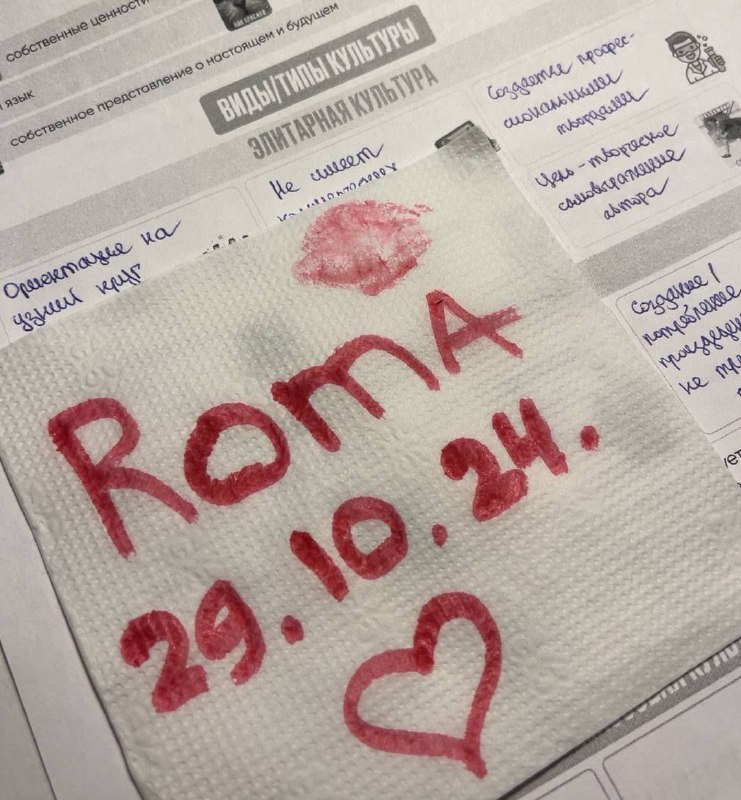 собственные ценност
язык
собственное представление о настоящем и будущем
ВИДЫ/ТИПЫ КУЛЬТУРЫ
ЭЛИТАРНАЯ КУЛЬТУРА
Создается профес-
сиональными
творцами
Цель - творческое
самовыражение
автора
Не имеет
Ориентация на
узкий круг
Создание/
потребление
не
ROMA
29.10.24.